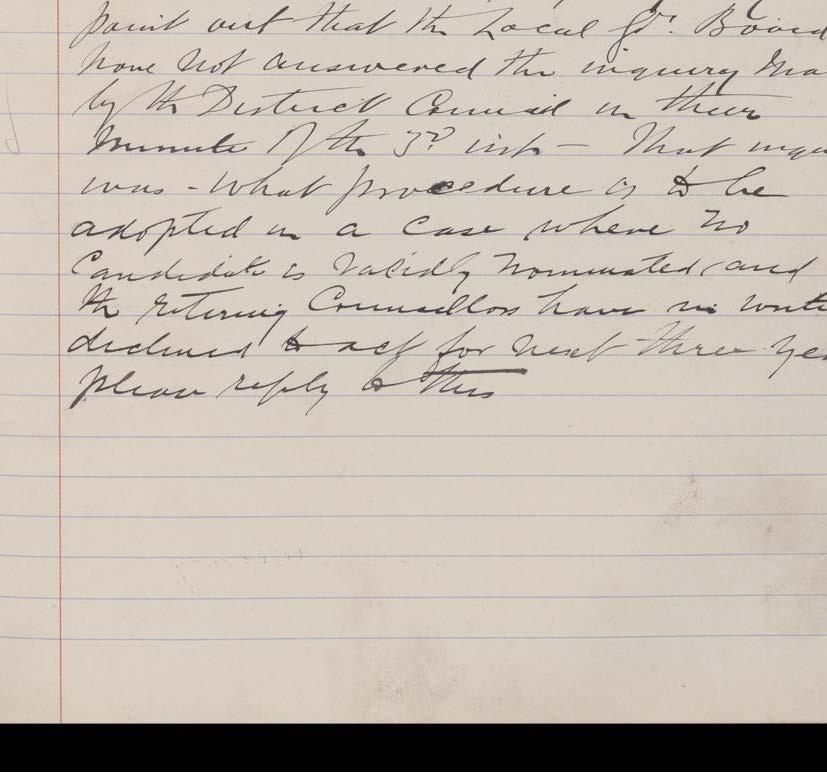 point out that the Local Gt. Board
have not answered the inquiry ma
by the District Council in their
Minute of the 3rd inst - That inqu
was - What procedure is to be
adopted in a case where no
Candidate is Validly Nominated, and
the retiring Councillors have in writi
declined to act for next three yea
please reply to this